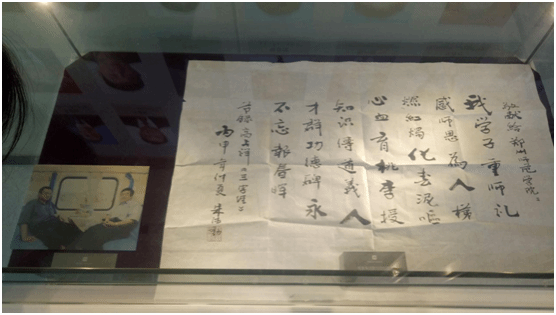 敬献给郑州师范学院:
我学子重师礼
感师恩为人梯
燃红烛化春泥呕
心血育桃李授
知识传道义人
才群功德碑永
不忘报春晖
节录高《三字经》
丙申年仲夏 朱